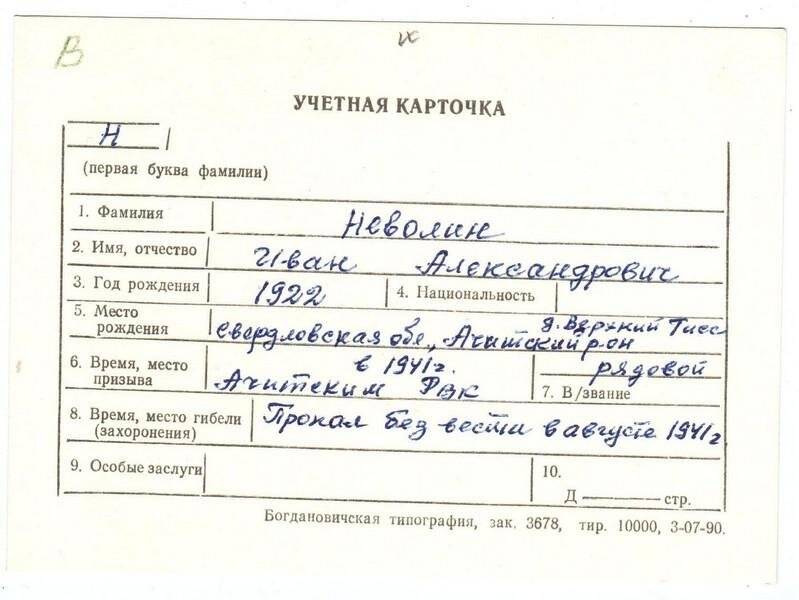 В
IX
УЧЕТНАЯ КАРТОЧКА
Н
(первая буква фамилии)
1. Фамилия Неволин
2. Имя, отчество Иван Александрович
3. Год рождения 1922 4. Национальность
5. Место рождения Свердловская обл., Ачитский р-он д. Верхний Тисс
6. Время, место призыва в 1941г. Ачитским РВК рядовой
7. В/звание
8. Время, место гибели (захоронения) Пропал без вести в августе 1941г.
9. Особые заслуги 10.
Д стр.
Богдановичская типография, зак. 3678, тир. 10000, 3-07-90.